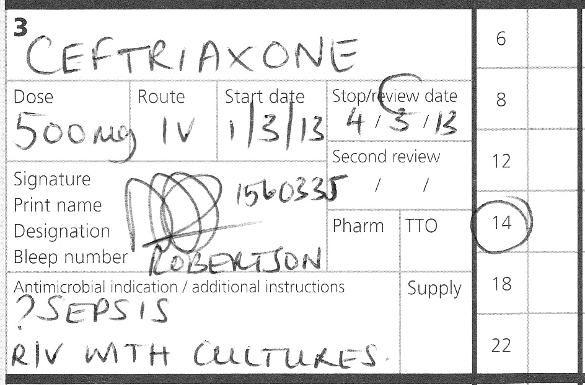 3
CEFTRIAXONE
Dose Route Start date Stop/review date
500mg IV 1/3/13 4/3/13
Second review
/ /
Signature 1560335
Print name
Designation
Bleep number ROBERTSON
Pharm TTO
Antimicrobial indication / additional instructions Supply
?SEPSIS
R/V WITH CULTURES.
6
8
12
14
18
22